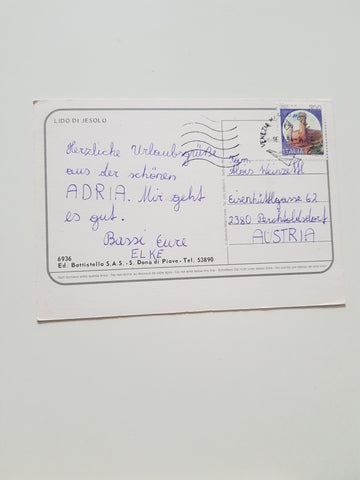 LIDO DI JESOLO
Herzliche Urlaubsgrüße
aus der schönen
ADRIA. Mir geht
es gut.
Bussi Eure
ELKE
6936
Ed. Battistella S.A.S. - S. Donà di Piave - Tel. 53890
VENEZIA
ITALIA
Fam.
Alois
Eisenhüttlgasse 62
2380 Perchtoldsdorf
AUSTRIA